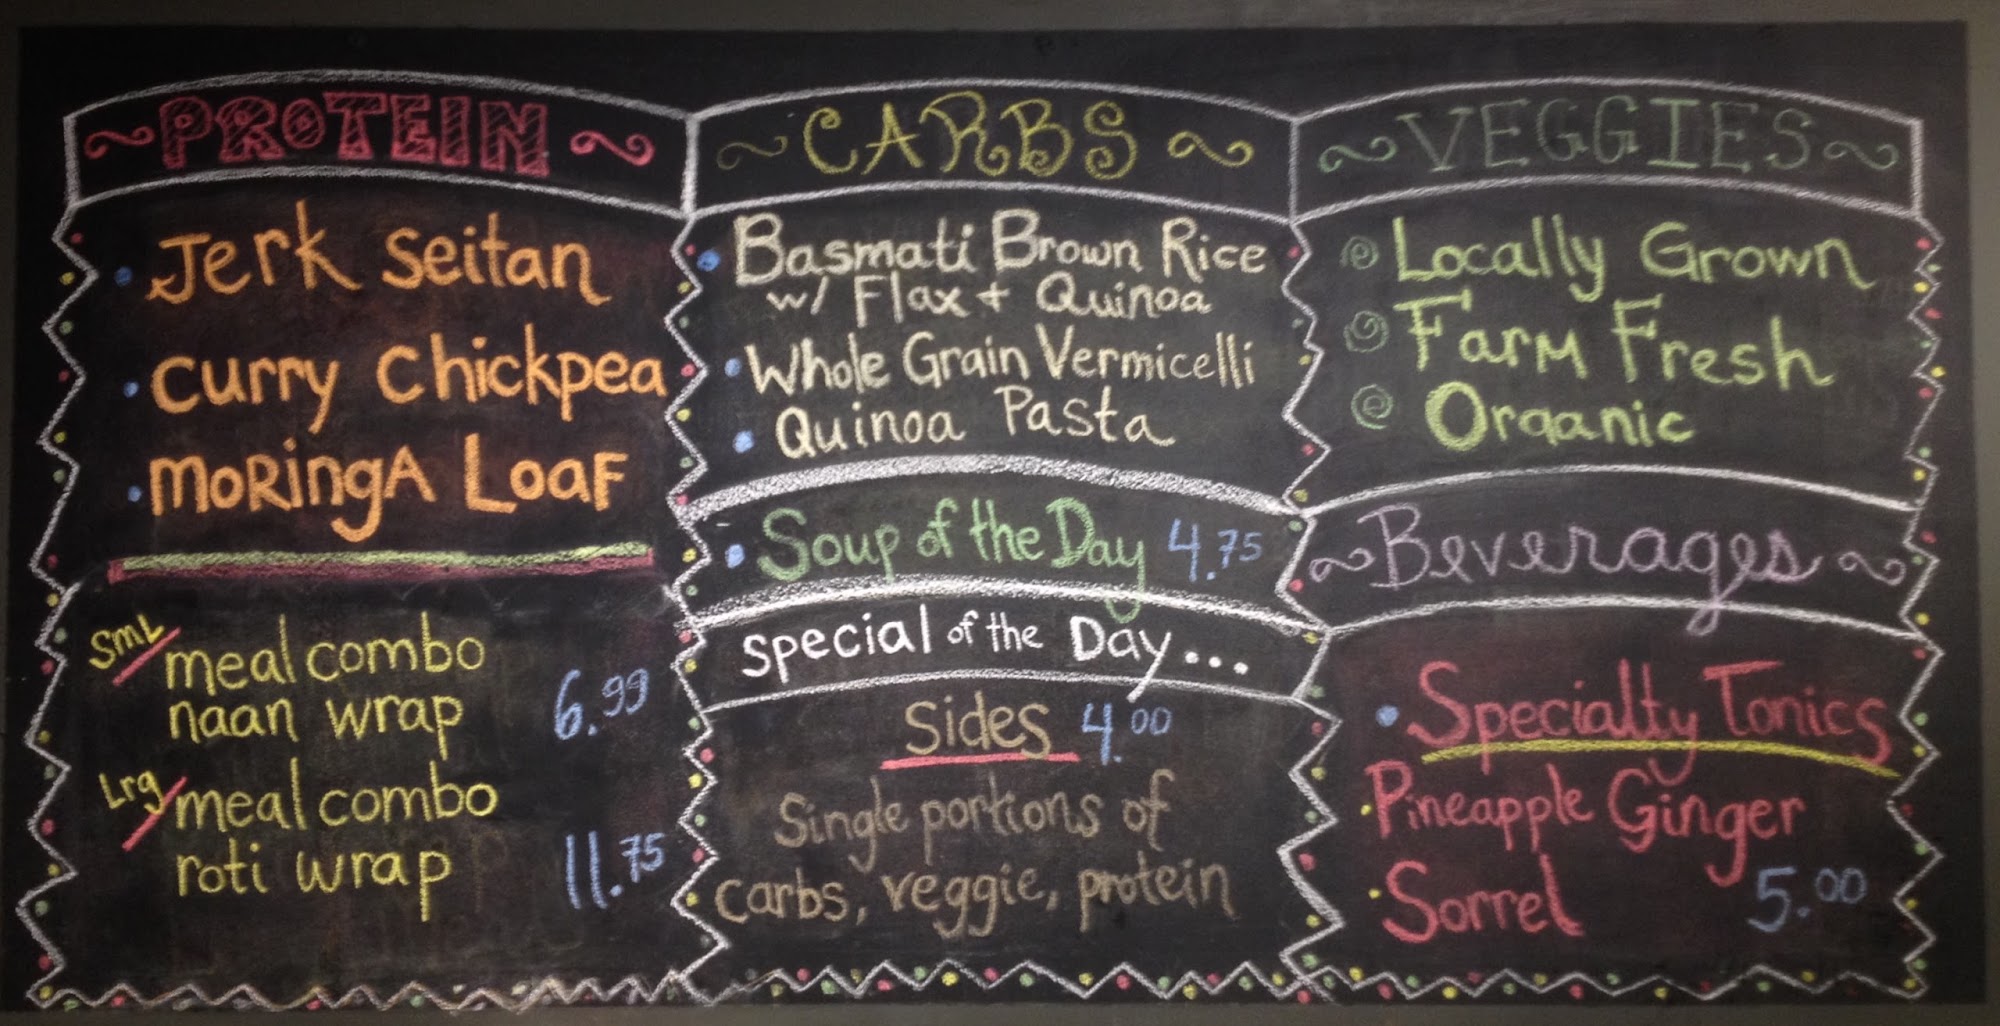 PROTEIN
Jerk Seitan
Curry Chickpea
Moringa Loaf
Sml/ meal combo
naan wrap 6.99
Lrg/ meal combo
roti wrap 11.75
CARBS
Basmati Brown Rice
w/ Flax + Quinoa
Whole Grain Vermicelli
Quinoa Pasta
Soup of the Day 4.75
Special of the Day...
Sides 4.00
Single portions of
carbs, veggie, protein
VEGGIES
Locally Grown
Farm Fresh
Organic
Beverages
Specialty Tonics
Pineapple Ginger
Sorrel 5.00